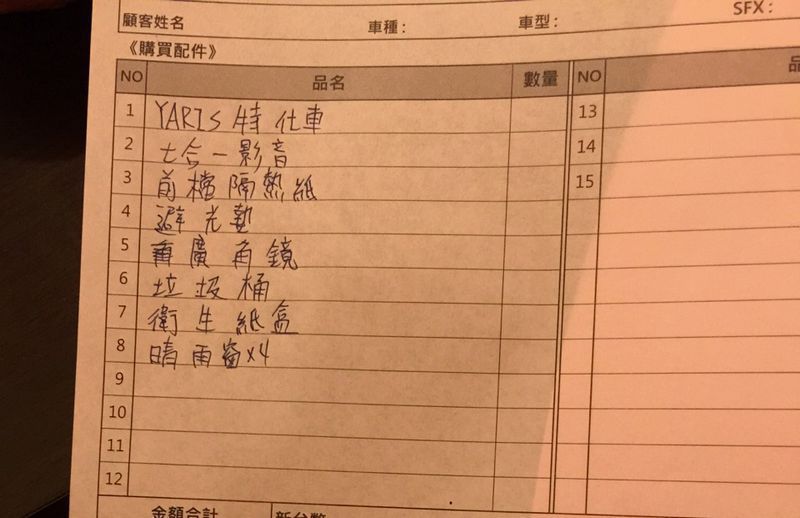 顧客姓名 車種： 車型： SFX：
《購買配件》
NO 品名 數量 NO 品
1 YARIS 特仕車 13
2 七合一影音 14
3 前檔隔熱紙 15
4 避光墊
5 廣角鏡
6 垃圾桶
7 衛生紙盒
8 晴雨窗x4
9
10
11
12
金額合計 新台幣